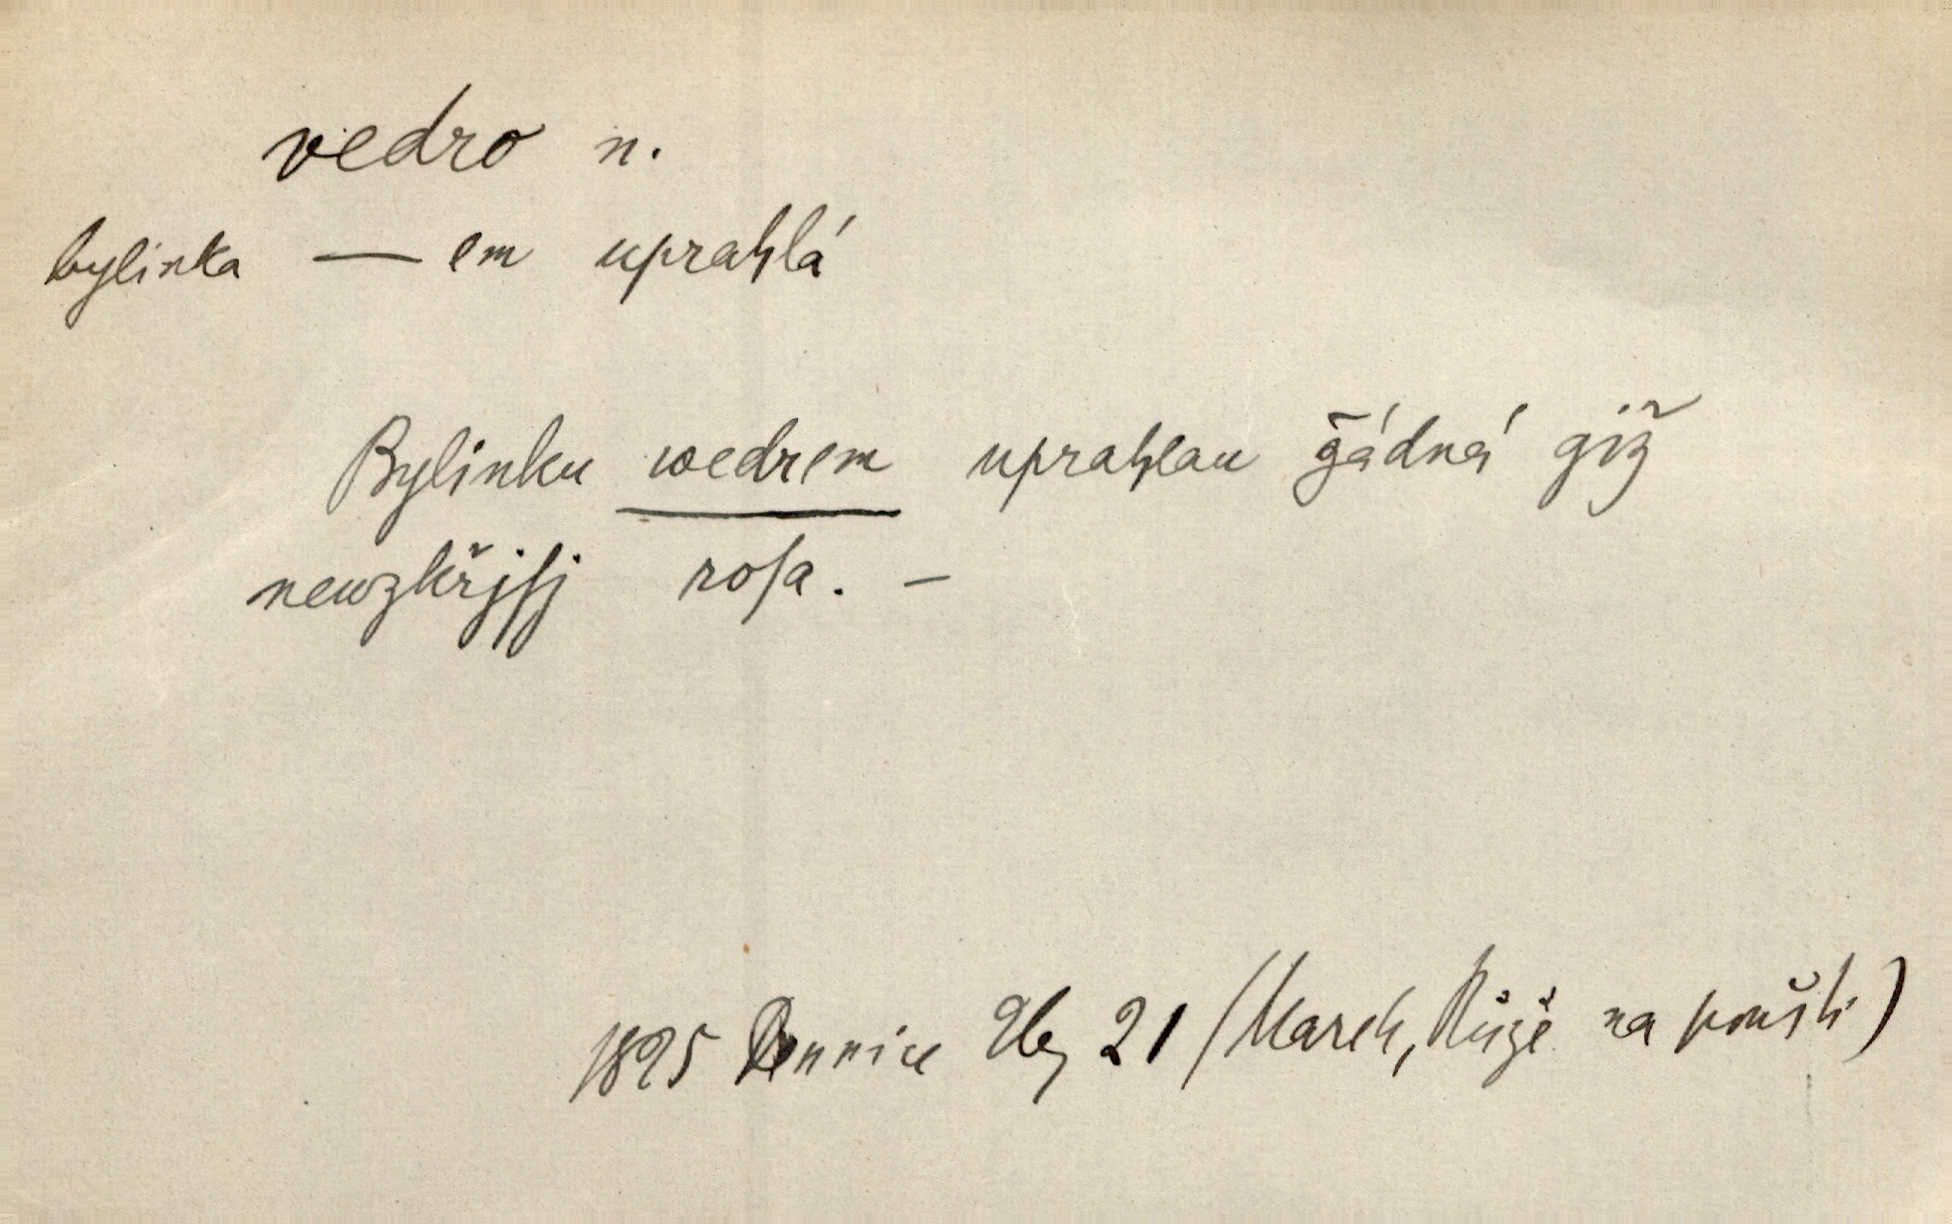 vedro n.
bylinka — em uprahlá
Bylinku wedrem uprahlau žádná giž
newzkřjsj rosa. –
1825 Dennice 2b, 21 (Marek, Růže na poušti)